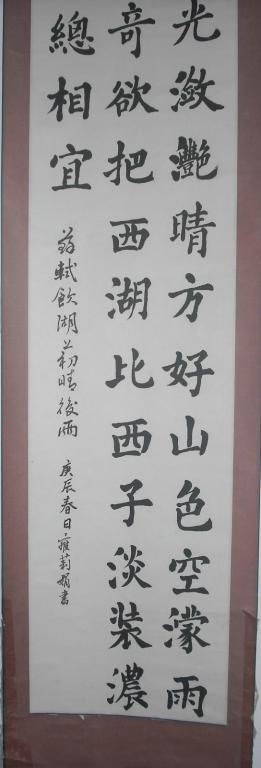 光瀲灩晴方好山色空濛雨
奇欲把西湖比西子淡装濃
總相宜
蘇軾飲湖上初晴後雨
庚辰春日 莉娟書